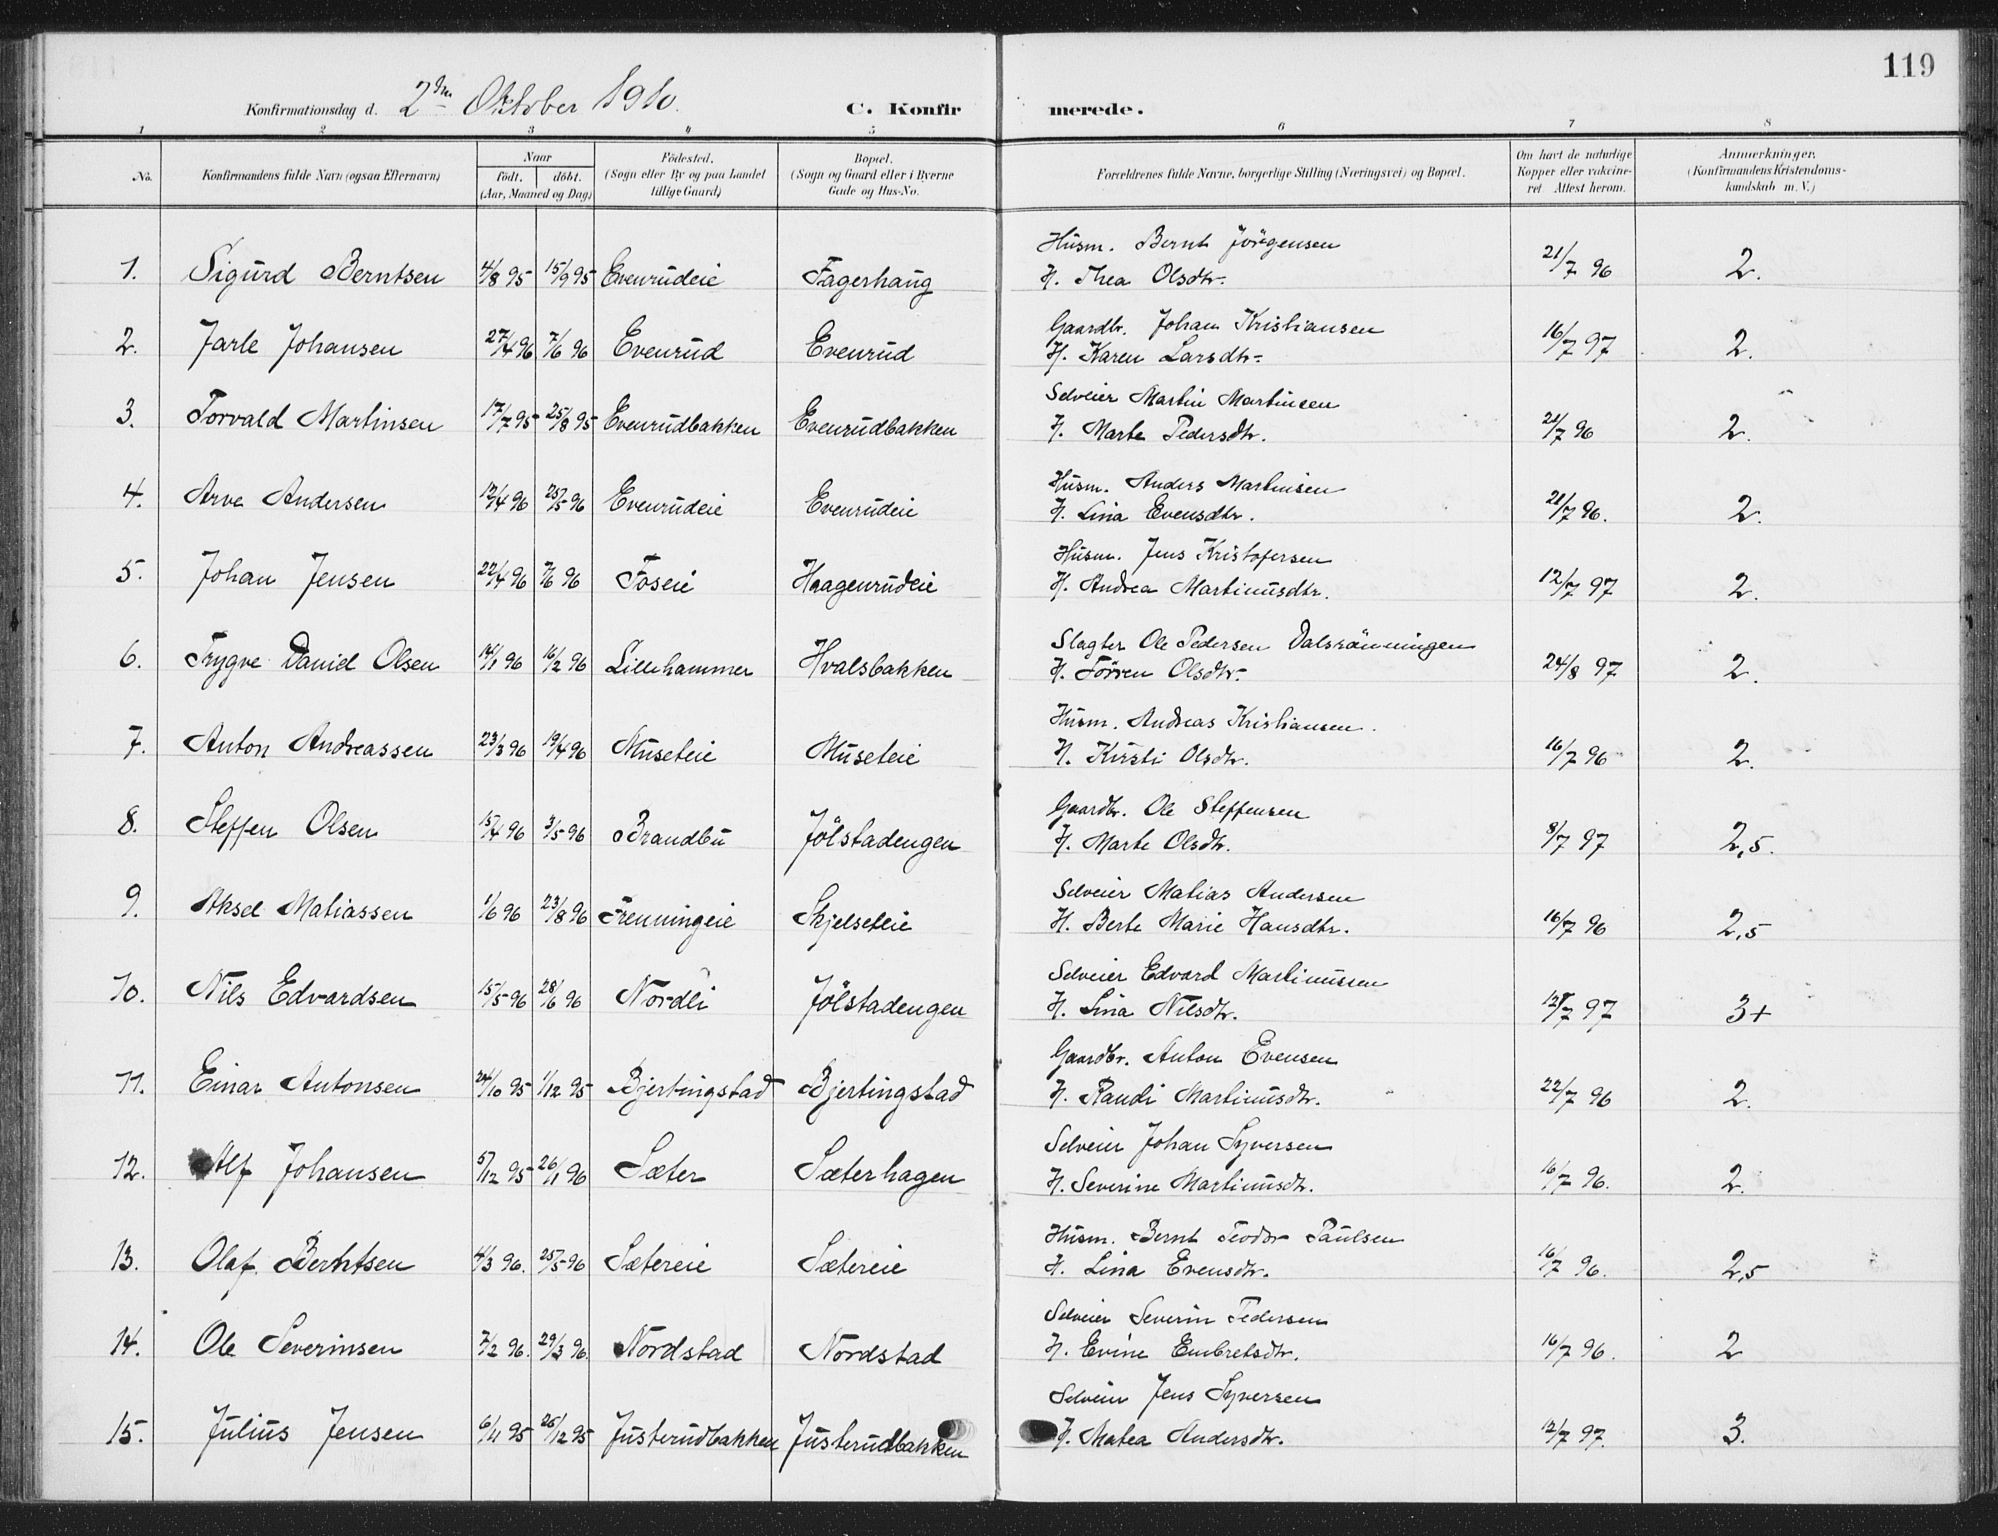 119
Konfirmationsdag d. 2den Oktober 1910. C. Konfirmerede.
1 2 3 4 5 6 7 8
No. Konfirmandens fulde Navn (ogsaa Efternavn) Naar födt. döbt. (Aar, Maaned og Dag) Födested. (Sogn eller By og paa Landet tillige Gaard) Bopæl. (Sogn og Gaard eller i Byerne Gade og Hus-No. Forældrenes fulde Navne, borgerlige Stilling (Næringsvei) og Bopæl. Om havt de naturlige Kopper eller vakcineret Attest herom. Anmerkninger. (Konfirmandens Kristendomskundskab m. V.)
Husm. Bernt Jörgensen
1. Sigurd Berntsen 4/8 95 15/9 95 Evenrudeie Fagerhaug H. Thea Olsdtr. 21/7 96 2.
Gaardbr. Johan Kristiansen
2. Jarle Johansen 27/4 96 7/6 96 Evenrud Evenrud H. Karen Larsdtr. 16/7 97 2.
Selveier Martin Martinsen
3. Torvald Martinsen 17/7 95 25/8 95 Evenrudbakken Evenrudbakken H. Marte Pedersdtr. 21/7 96 2.
Husm. Anders Martinsen
4. Arve Andersen 12/4 96 25/5 96 Evenrudeie Evenrudeie H. Lina Evensdtr. 21/7 96. 2.
Husm. Jens Kristofersen
5. Johan Jensen 22/4 96 7/6 96 Foseie Haagenrudeie H. Andrea Martinusdtr. 12/7 97 2.
Slagter Ole Pedersen Dalsrönningen
6. Trygve David Olsen 14/1 96 16/2 96 Lillehammer Hvalsbakken H. Törren Olsdtr. 24/8 97 2.
Husm. Andreas Kristiansen.
7. Anton Andreassen 23/3 96 19/4 96 Museteie Museteie H. Kirsti Olsdtr. 16/7 96 2.
Gaardbr. Ole Steffensen
8. Steffen Olsen 15/4 96 3/5 96 Brandbu Jölstadengen H. Marte Olsdtr. 8/7 97 2,5.
Selveier Matias Andersen
9. Aksel Matiassen 1/6 96 23/8 96 Frenningeie Skjelseteie H. Berte Marie Hansdtr. 16/7 96 2,5
Selveier Edvard Martinussen
10. Nils Edvardsen 15/5 96 28/6 96 Nordli Jölstadengen H. Lina Nilsdtr. 97 3+
Gaardbr. Anton Evensen
11. Einar Antonsen 24/10 95 1/12 95 Bjertingstad Bjertingstad H. Randi Martinusdtr. 22/7 96 2.
Selveier Johan Syversen
12. Alf Johansen 5/12 95 26/1 96 Sæter Sæterhagen H. Severine Martinusdtr. 16/7 96. 2.
Husm. Bernt Teodor Paulsen
13. Olaf Berntsen 4/3 96. 25/5 96 Sætereie Sætereie H. Lina Evensdtr. 16/7 96. 2,5
Selveier Severin Pedersen
14. Ole Severinsen 7/2 96. 29/3 96. Nordstad Nordstad H. Evine Embretsdtr. 16/7 96. 2
Selveier Jens Syversen
15. Julius Jensen 6/11 95 26/12 95 Justerudbakken Justerudbakken H. Matea Andersdtr. 12/7 97. 3.